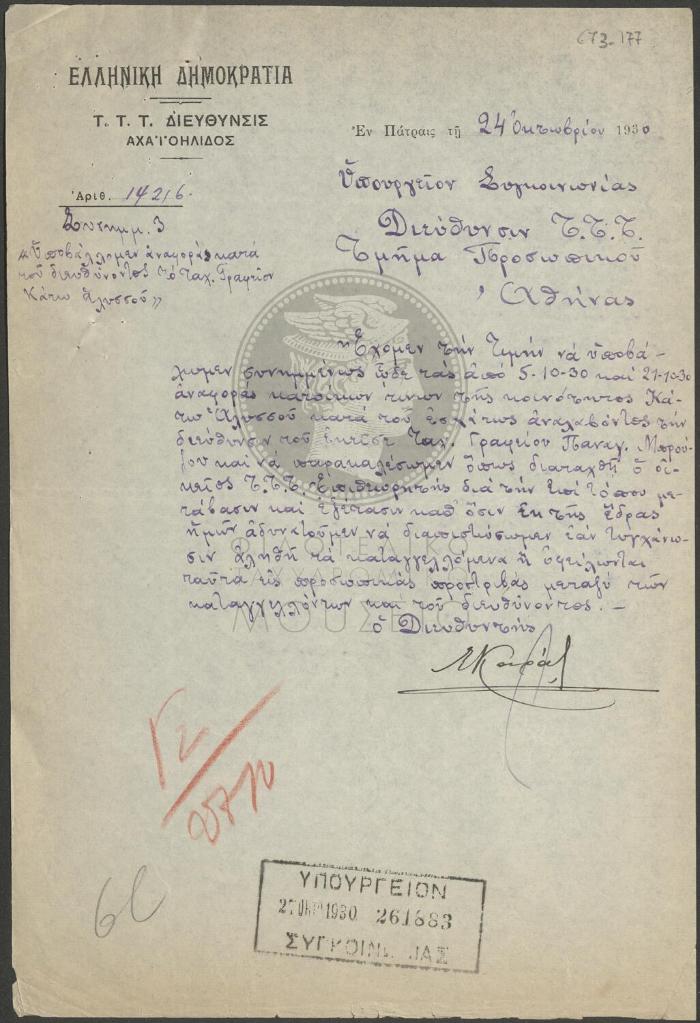 673-177
ΕΛΛΗΝΙΚΗ ΔΗΜΟΚΡΑΤΙΑ
Τ. Τ. Τ. ΔΙΕΥΘΥΝΣΙΣ
ΑΧΑΪΟΗΛΙΔΟΣ
Ἐν Πάτραις τῇ 24 Ὀκτωβρίου 1930
Ἀριθ. 14216.
Συνημμ. 3
«Ὑποβάλλομεν ἀναφοράς κατά
τοῦ διευθύνοντος τό ταχ. Γραφεῖον
Κάτω Ἀλυσσοῦ»
Ὑπουργεῖον Συγκοινωνίας
Διεύθυνσιν Τ.Τ.Τ.
Τμῆμα Προσωπικοῦ
Ἀθήνας
Ἔχομεν τήν τιμήν νά ὑποβά-
λωμεν συνημμένως ὧδε τάς ἀπό 5-10-30 καί 21-10-30
ἀναφοράς κατοίκων τινων τῆς κοινότητος Κά-
τω Ἀλυσσοῦ κατά τοῦ ἐσχάτως ἀναλαβόντος τήν
διεύθυνσιν τοῦ ἐκεῖσε Ταχ. Γραφείου Παναγ.
καί νά παρακαλέσωμεν ὅπως διαταχθῇ ὁ οἰ-
κεῖος Τ.Τ.Τ. Ἐπιθεωρητής διά τήν ἐπί τόπου με-
τάβασιν καί ἐξέτασιν καθ' ὅσιν ἐκ τῆς ἕδρας
ἡμῶν ἀδυνατοῦμεν νά διαπιστώσωμεν ἐάν τυγχάνω-
σιν ἀληθῆ τά καταγγελλόμενα ἤ ὀφείλωνται
ταῦτα εἰς προσωπικάς προστριβάς μεταξύ τῶν
καταγγελλόντων καί τοῦ διευθύνοντος.—
ὁ Διευθυντής
ΜΟΥΣΕΙΟ
27/10
ΥΠΟΥΡΓΕΙΟΝ
27 ΟΚΤ 1930 261883
ΣΥΓΚΟΙΝΩΝΙΑΣ